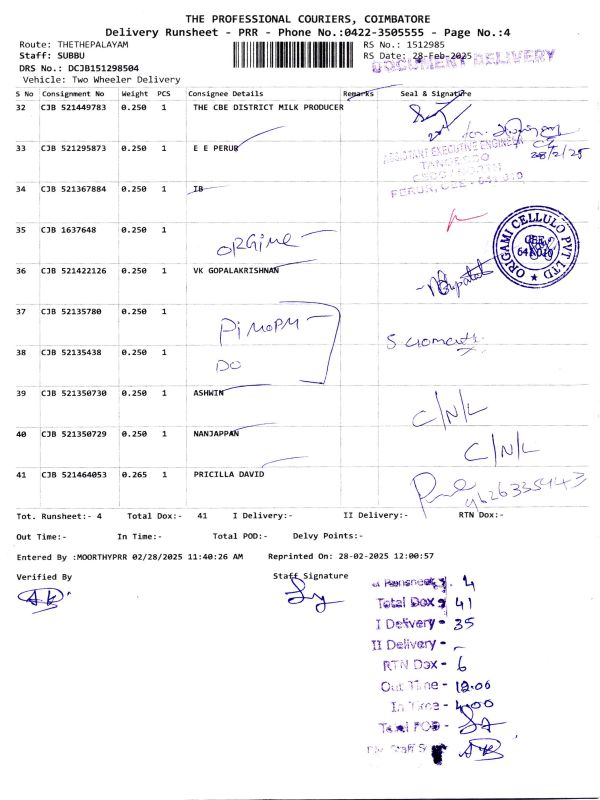 THE PROFESSIONAL COURIERS, COIMBATORE
Delivery Runsheet - PRR - Phone No.:0422-3505555 - Page No.:4
Route: THETHEPALAYAM RS No.: 1512985
Staff: SUBBU RS Date: 28-Feb-2025
DOCUMENT DELIVERY
DRS No.: DCJB151298504
Vehicle: Two Wheeler Delivery
S No Consignment No Weight PCS Consignee Details Remarks Seal & Signature
32 CJB 521449783 0.250 1 THE CBE DISTRICT MILK PRODUCER
33 CJB 521295873 0.250 1 E E PERUR
ASSISTANT EXECUTIVE ENGINEER
28/2/25
TANGEDCO
PERUR, CBE - 641 010
34 CJB 521367884 0.250 1 IB
35 CJB 1637648 0.250 1
ORIGAMI CELLULO PVT LTD
CBE
641 010
36 CJB 521422126 0.250 1 VK GOPALAKRISHNAN
37 CJB 52135780 0.250 1
38 CJB 52135438 0.250 1 DO
39 CJB 521350730 0.250 1 ASHWIN
C/N/L
40 CJB 521350729 0.250 1 NANJAPPAN
C/N/L
41 CJB 521464053 0.265 1 PRICILLA DAVID
9626335943
Tot. Runsheet:- 4 Total Dox:- 41 I Delivery:- II Delivery:- RTN Dox:-
Out Time:- In Time:- Total POD:- Delvy Points:-
Entered By :MOORTHYPRR 02/28/2025 11:40:26 AM Reprinted On: 28-02-2025 12:00:57
Verified By Staff Signature
Runsheet 4
Total Dox 41
I Delivery - 35
II Delivery - -
RTN Dox - 6
Out Time - 12.06
In Time - 4.00
Total POD -